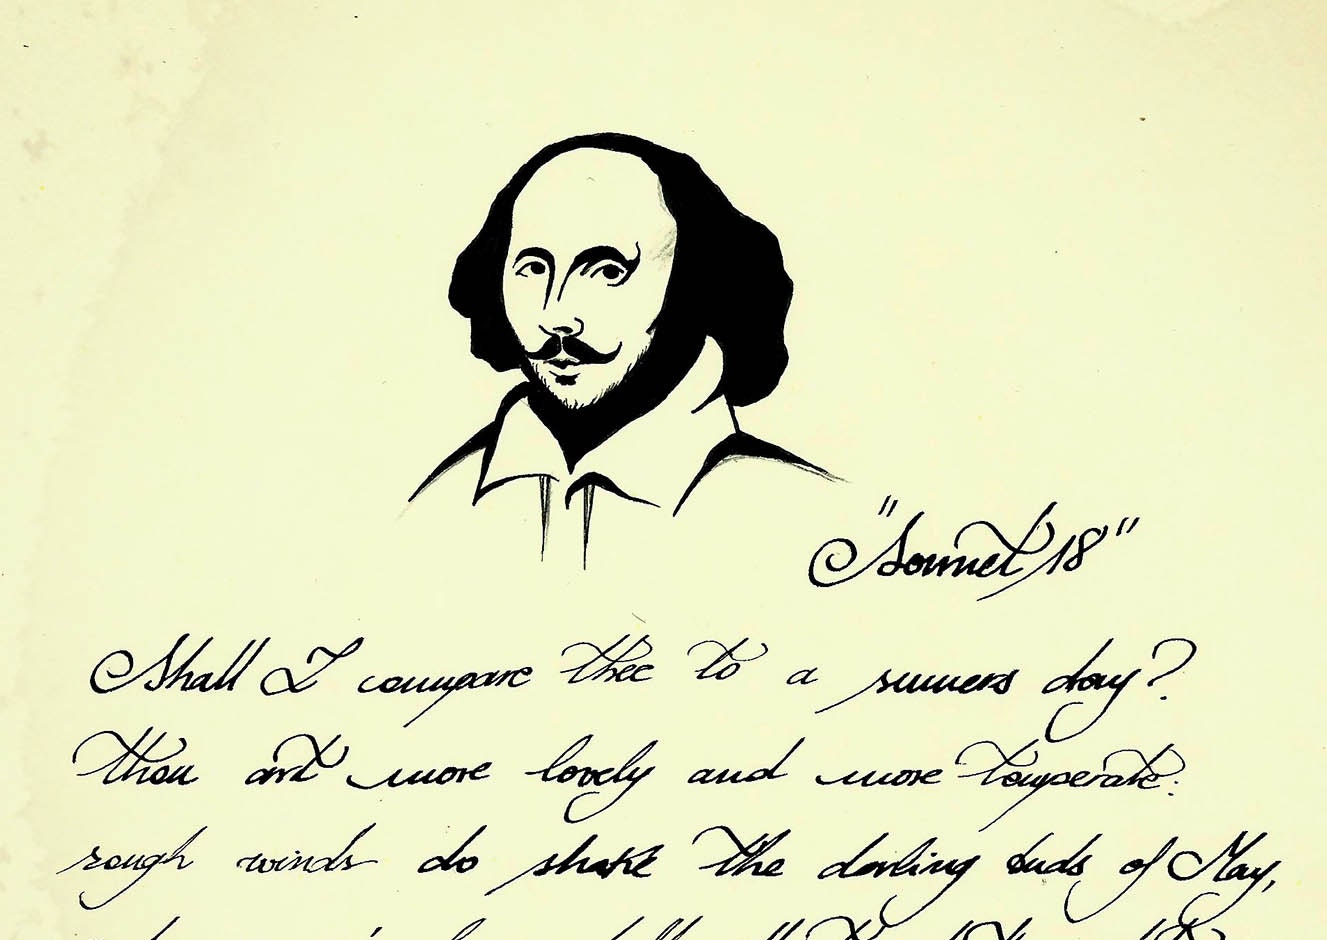 "Sonnet 18"
Shall I compare thee to a sumers day?
thou art more lovely and more temperate:
rough winds do shake the darling buds of May,